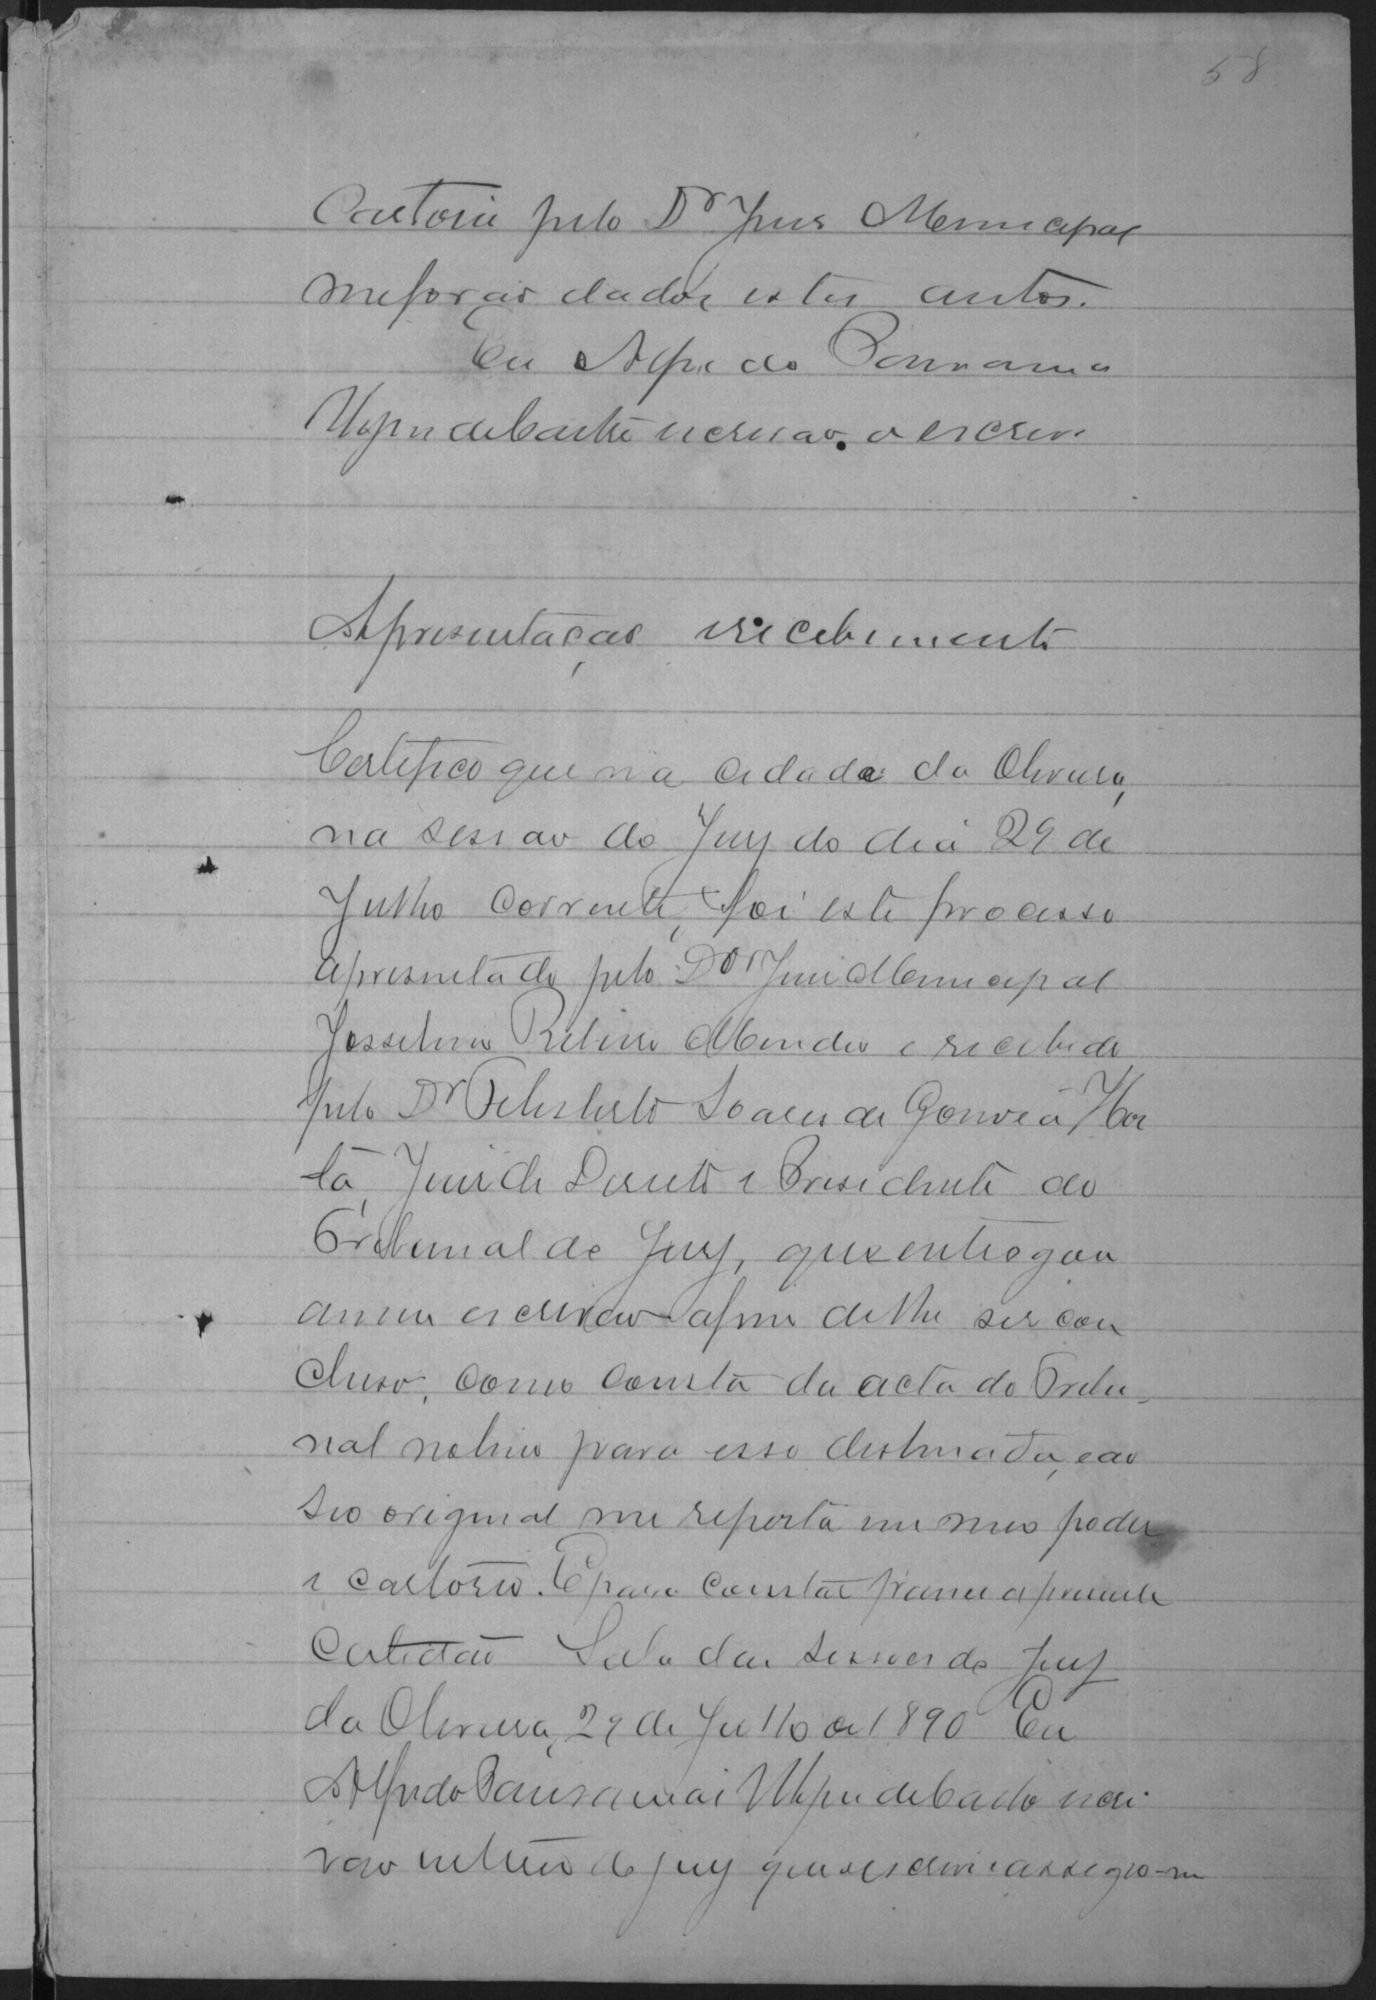 58
Cartorio pelo Dr Juis Municipal
me forão dados estes autos.
Eu Alfredo
de Castro escrivão. o escrevi
Apresentação e recebimento
Certifico que na cidade da Oliveira,
na sessão do Jury do dia 29 de
Julho corrente, foi este processo
apresentado pelo Dor Juis Municipal
Josselino Ribeiro Mendes e recebido
pelo Dr Felisberto Soares de Gouvêa Hor
ta, Juis de Direito e Presidente do
Tribunal do Jury, que entregou
a mim escrivão afim de lhe ser con
cluso, como consta da acta do Tribu-
nal no livro para esso destinado, e ao
seo original me reporto em meo poder
e cartorio. E para constar a presente
Certidão Sala das sessoes do Jury
da Oliveira, 29 de Julho de 1890 Eu
Alfredo de Castro escri
vão interino do jury que escrevi e assigno-me